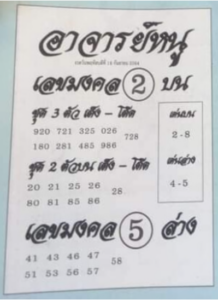 อาจารย์หนู
เลขมงคล 2 บน
ชุด 3 ตัว เต็ง - โต๊ด
920 721 325 026
728
180 281 485 986
เด่นบน
2 - 8
ชุด 2 ตัวบน เต็ง - โต๊ด
20 21 25 26
28
80 81 85 86
เด่นล่าง
4 - 5
เลขมงคล 5 ล่าง
41 43 46 47
58
51 53 56 57